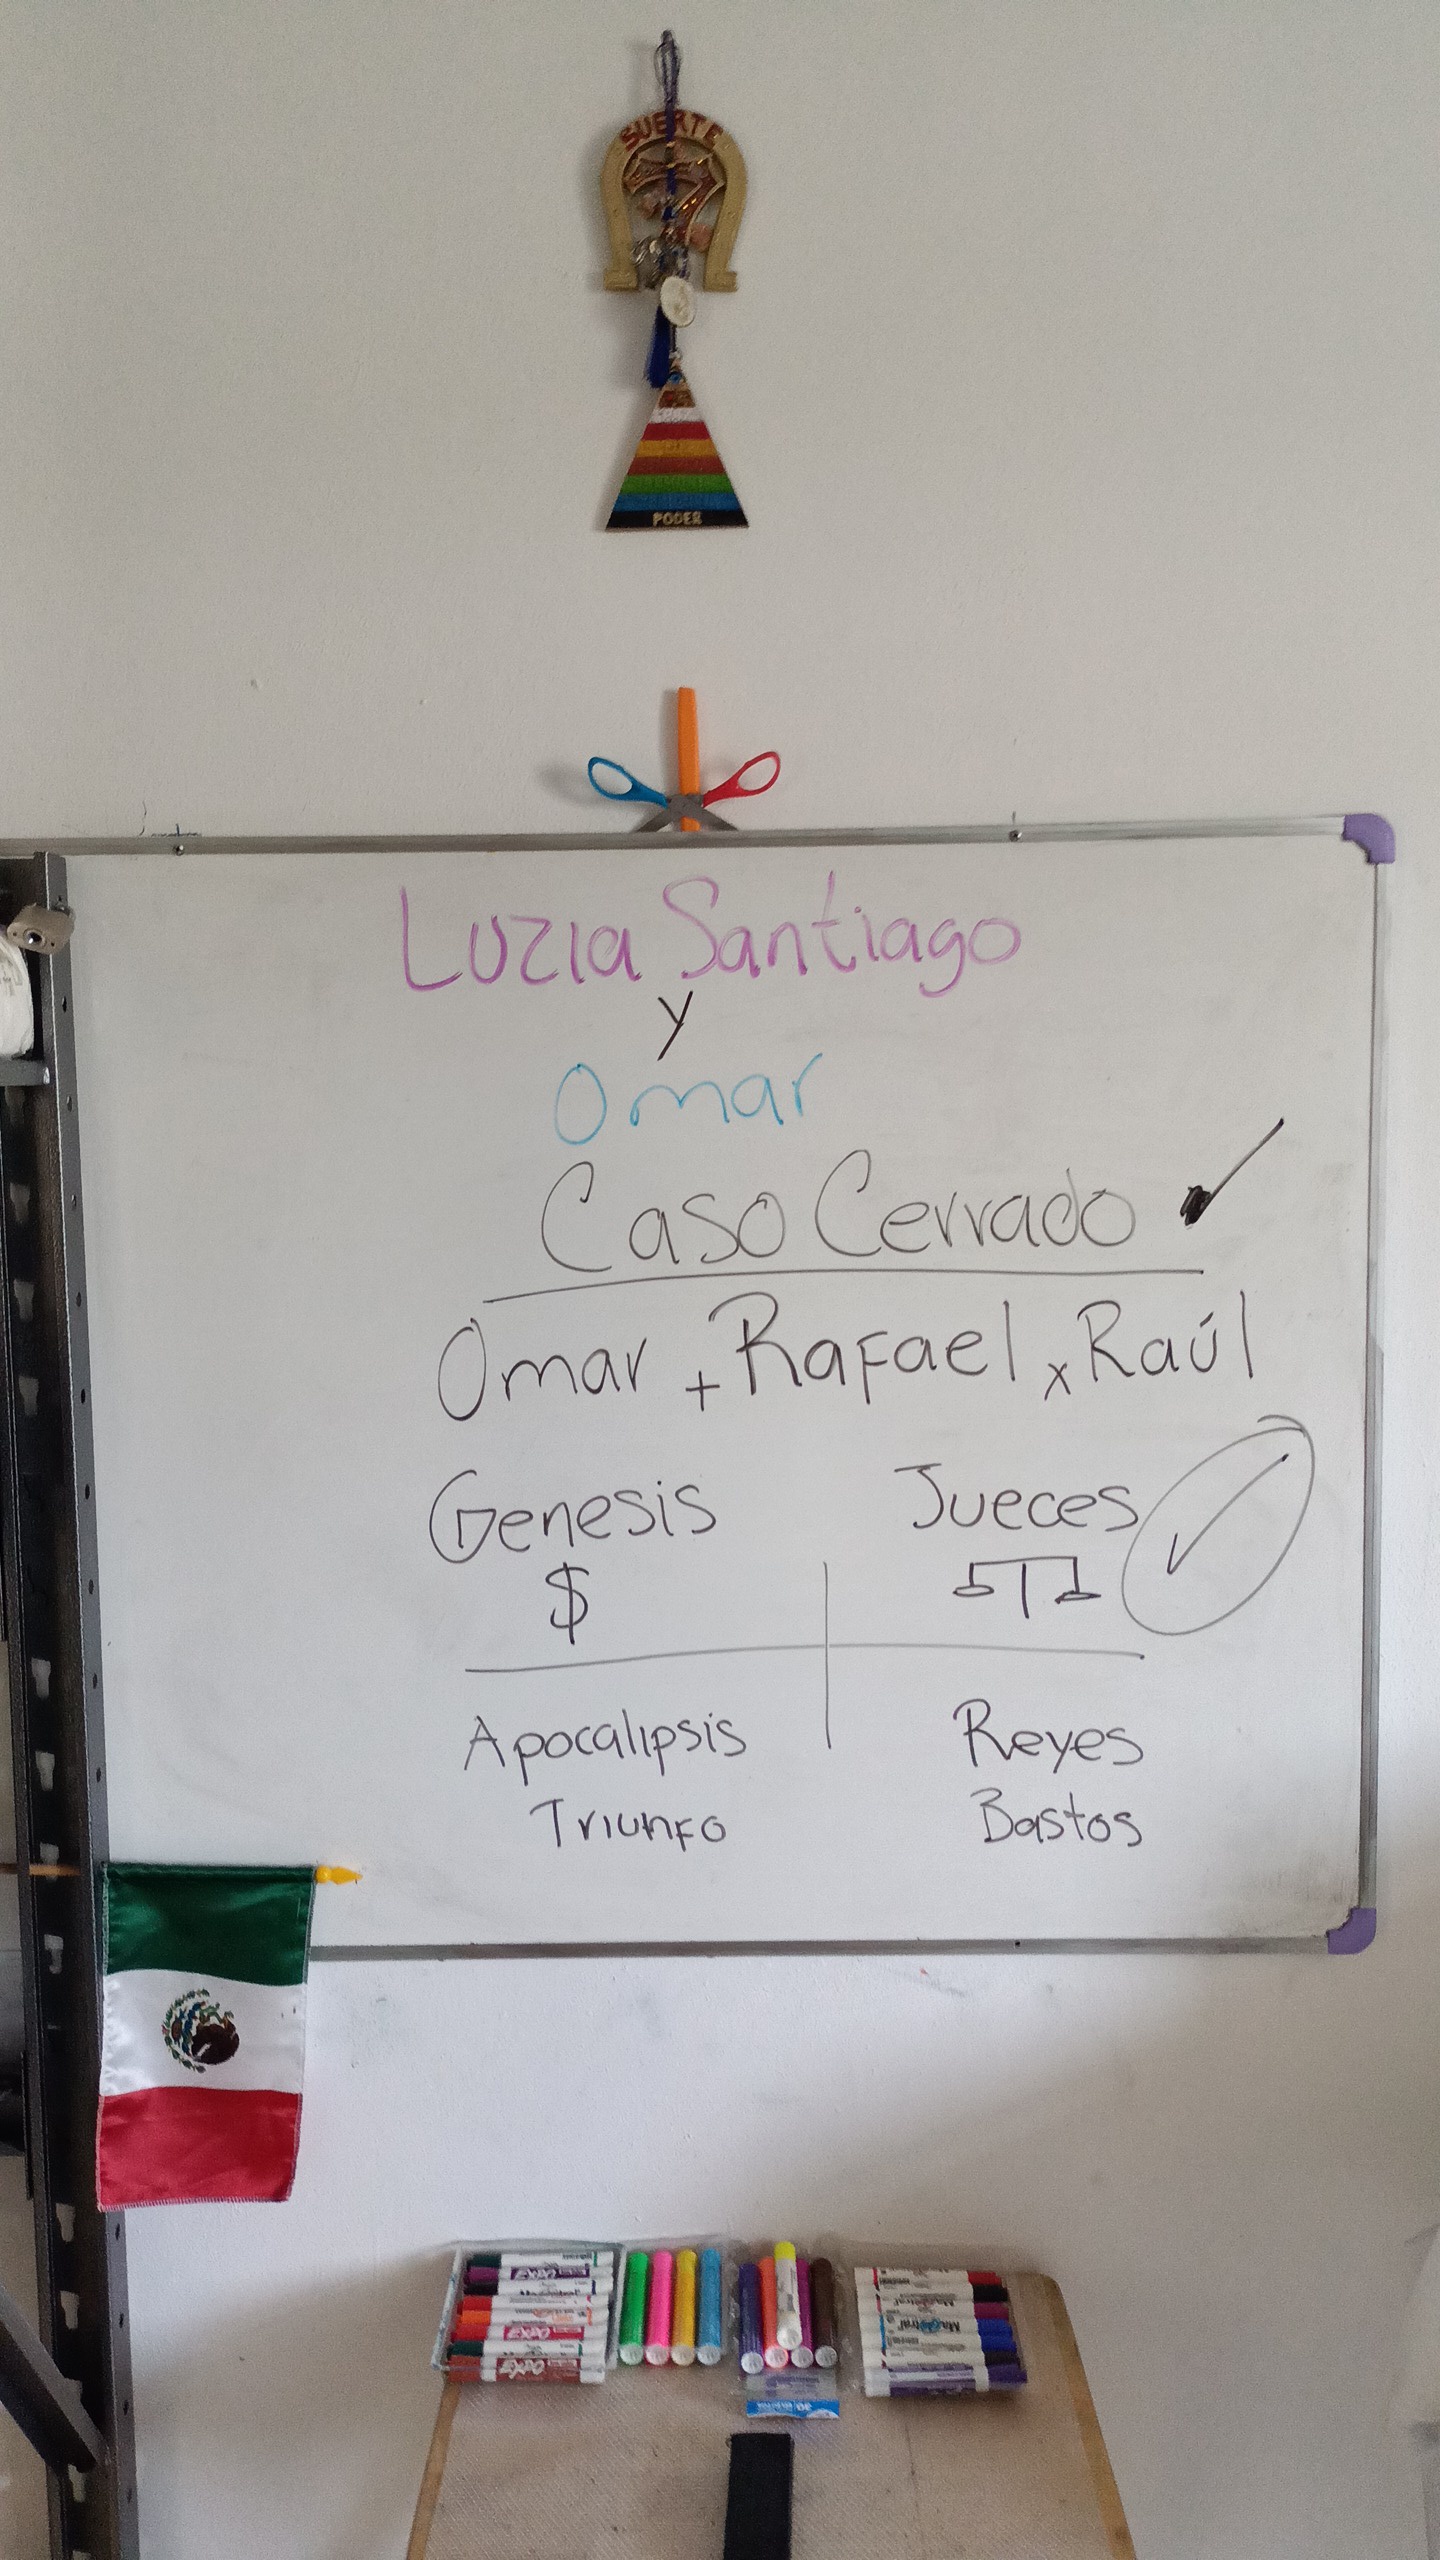 SUERTE
PODER
Luzia Santiago
y
Omar
Caso Cerrado ✓
Omar + Rafael x Raúl
Genesis Jueces ✓
$
Apocalipsis Reyes
Triunfo Bastos
EXPO
EXPO
EXPO
Magistral